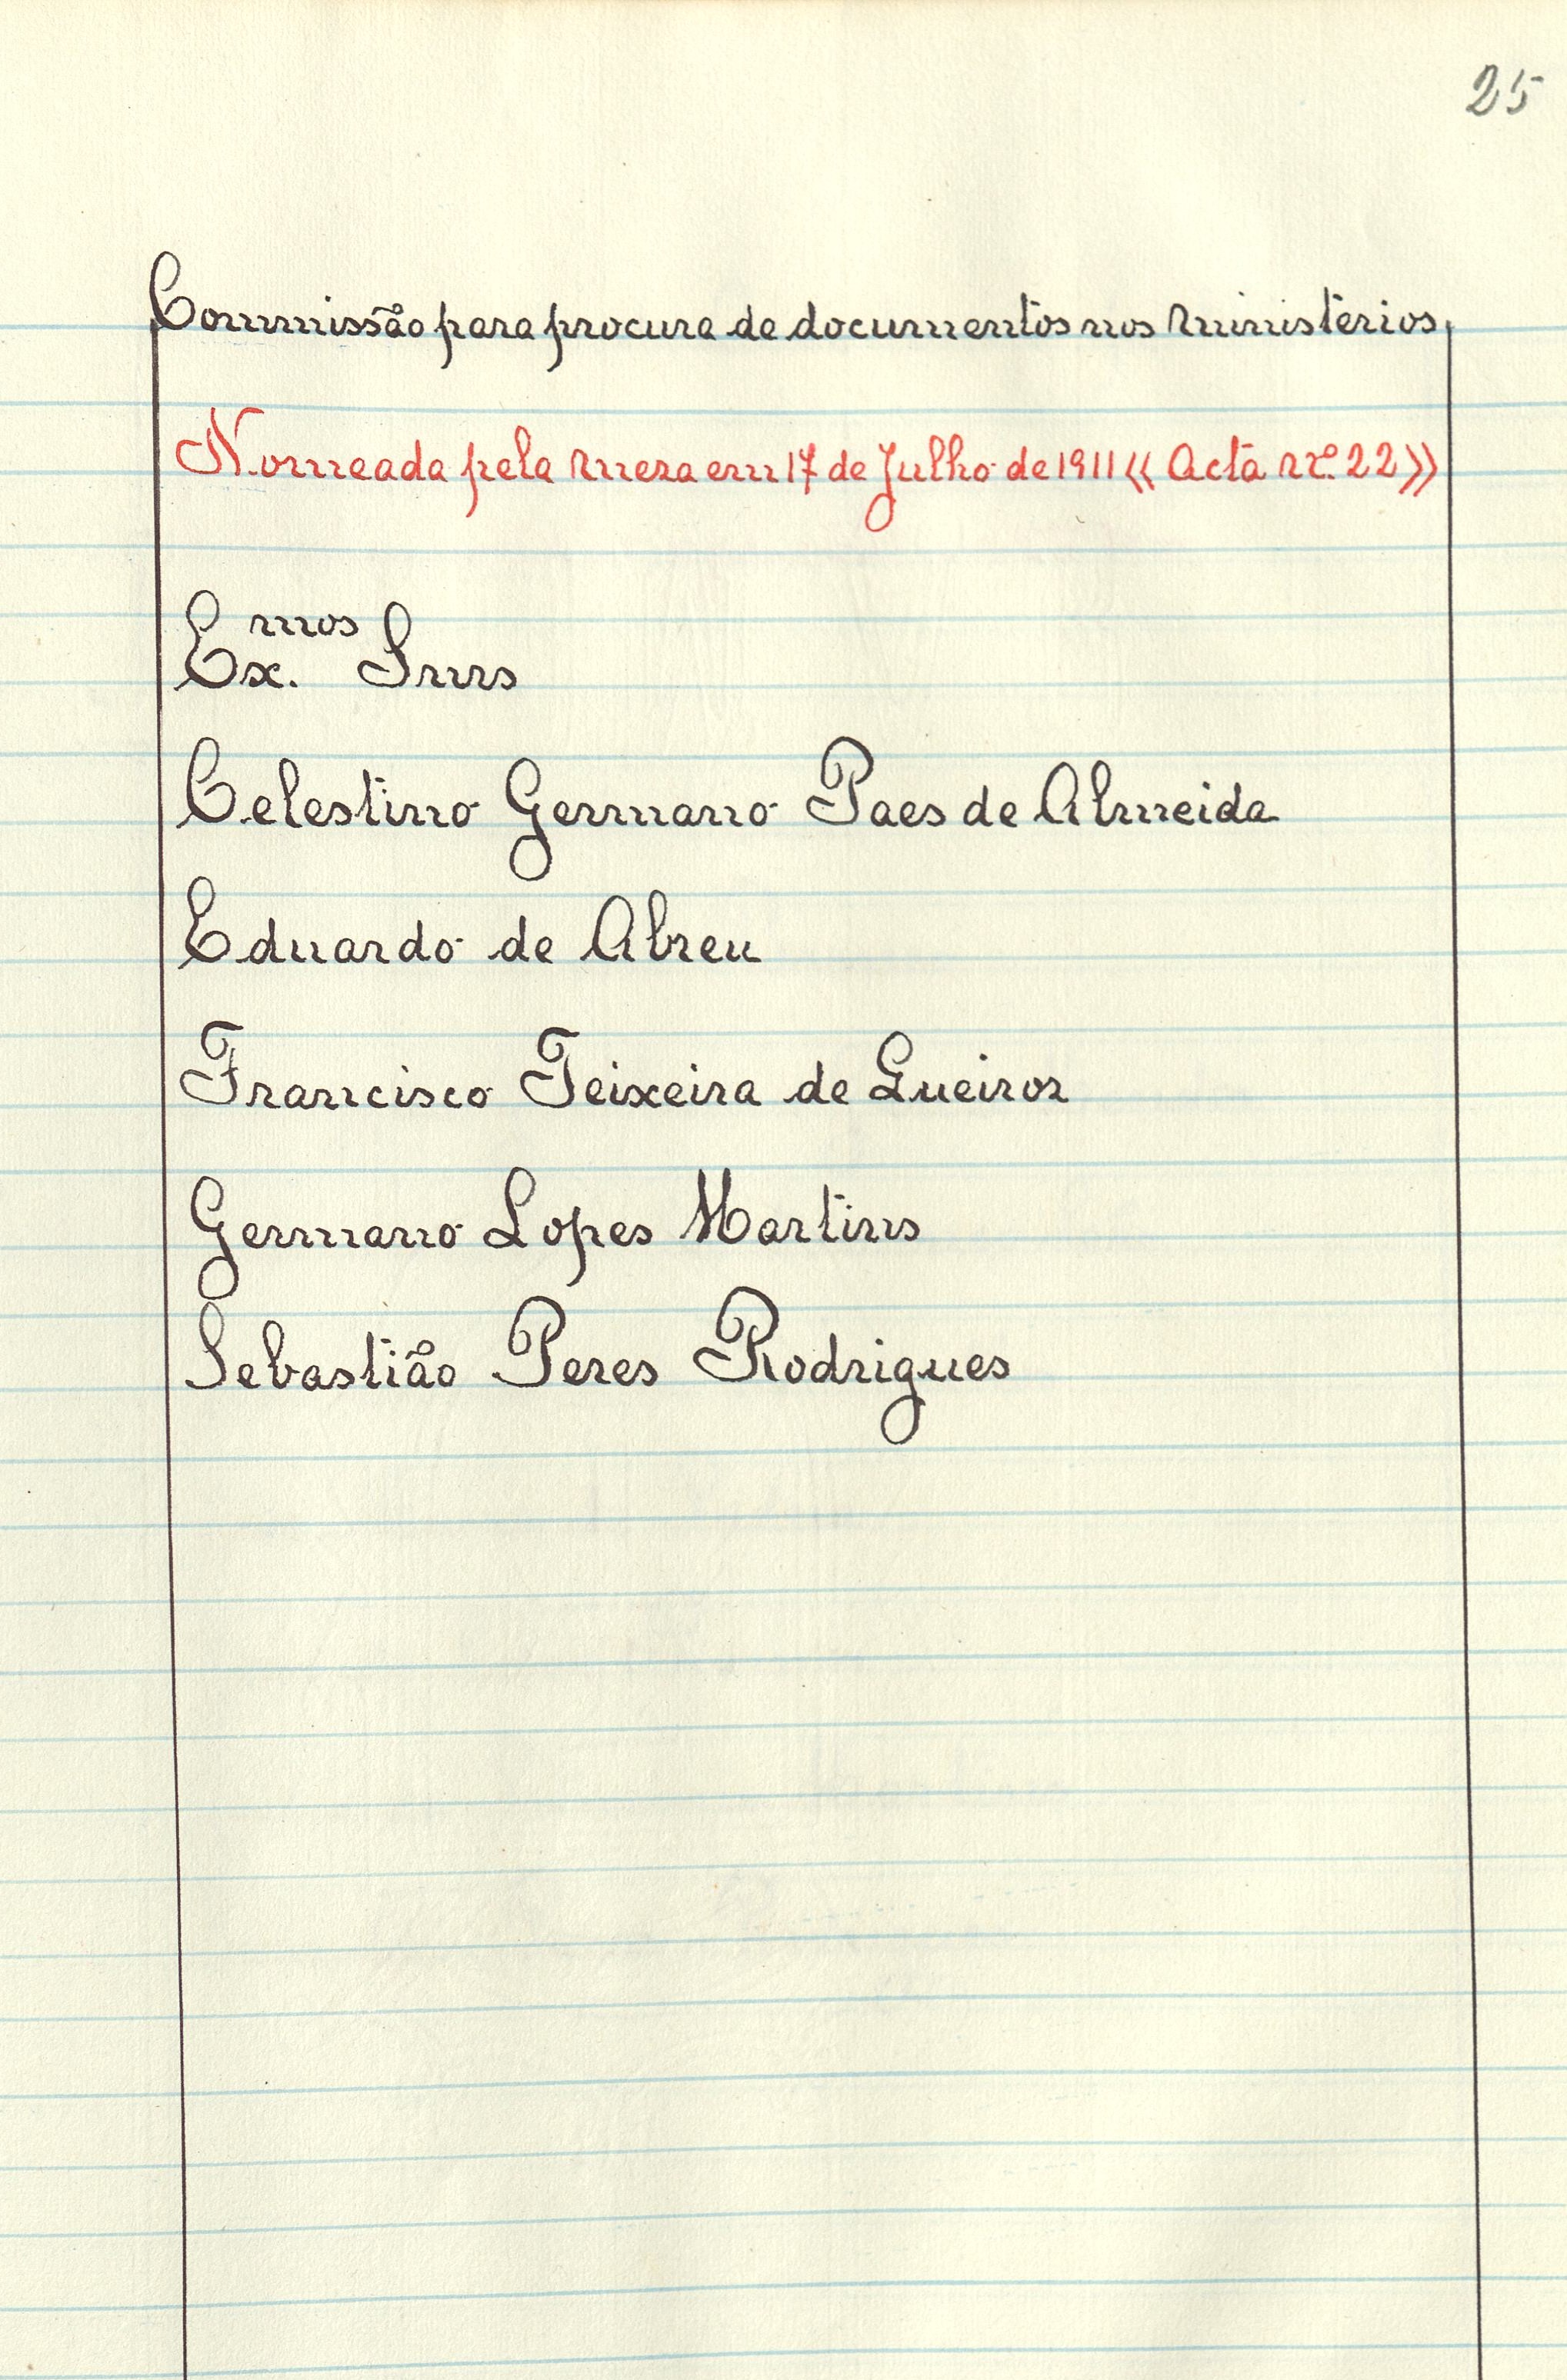 25
Commissão para procura de documentos nos ministerios
Nomeada pela meza em 17 de Julho de 1911 « Acta nº. 22 »
Ex.mos Snrs
Celestino Germano Paes de Almeida
Eduardo de Abreu
Francisco Teixeira de Queiroz
Germano Lopes Martins
Sebastião Peres Rodrigues